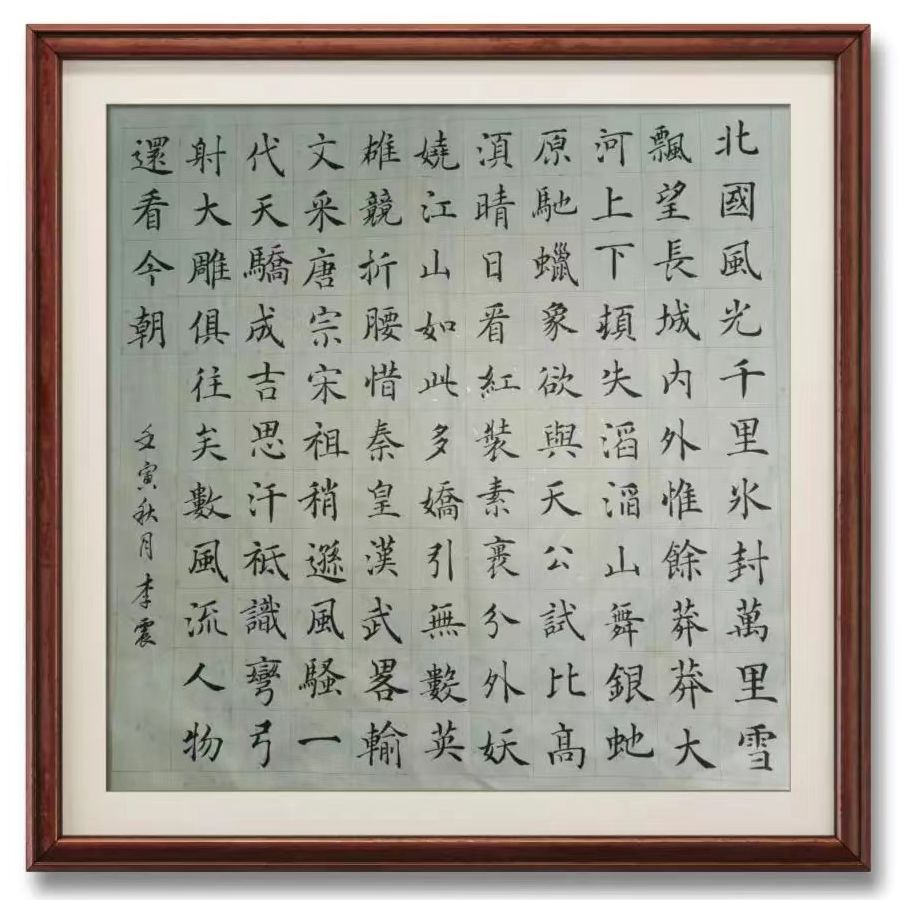 北國風光千里氷封萬里雪
飄望長城内外惟餘莽莽大
河上下頓失滔滔山舞銀虵
原馳蠟象欲與天公試比髙
湏晴日看紅裝素裹分外妖
嬈江山如此多嬌引無數英
雄競折腰惜秦皇漢武畧輸
文采唐宗宋祖稍遜風騷一
代天驕成吉思汗祗識彎弓
射大雕俱往矣數風流人物
還看今朝
壬寅秋月李震